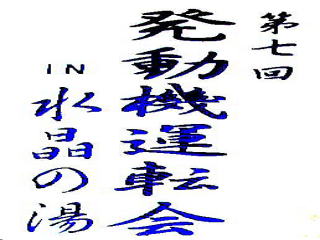 第七回
発動機運転会
IN
水晶の湯